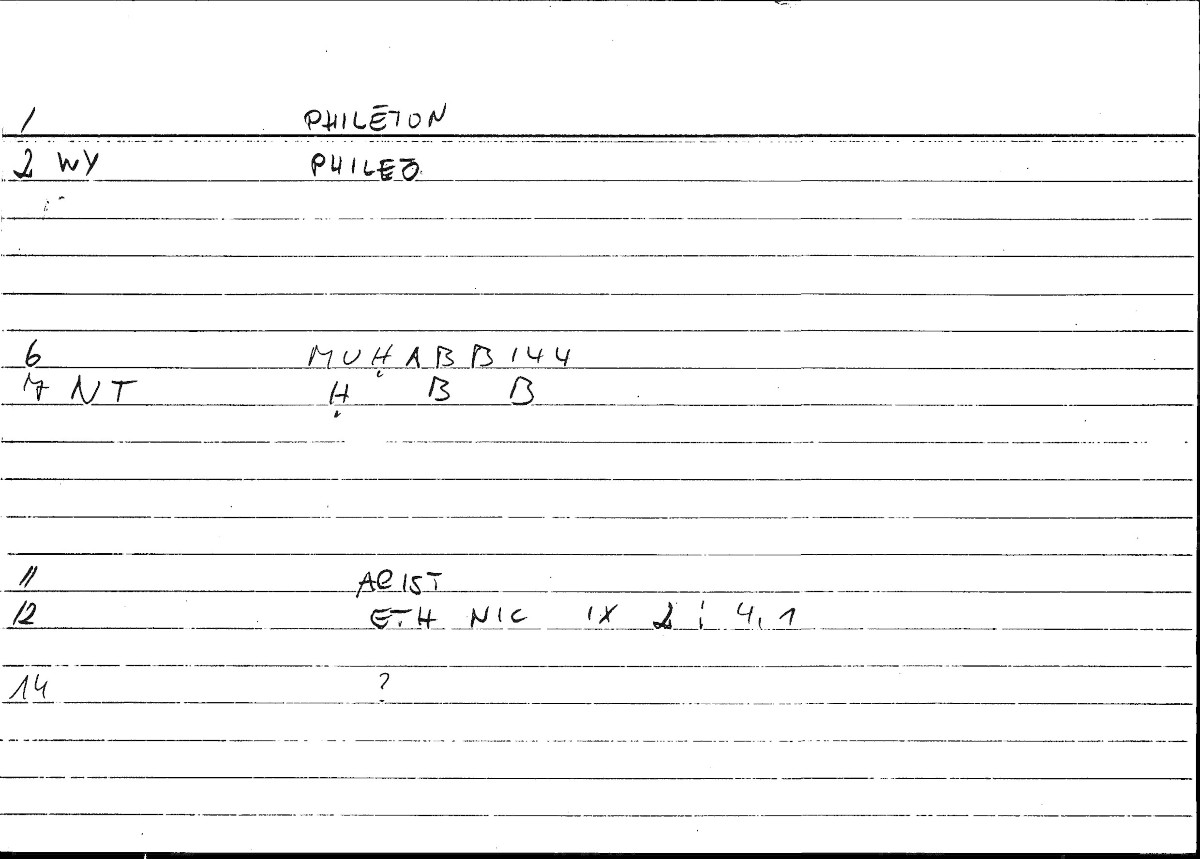 1 PHILĒTON
2 WY PHILEŌ
6 MUḤABB144
7 NT Ḥ B B
11 ARIST
12 ETH NIC IX 2 ; 4, 1
14 ?